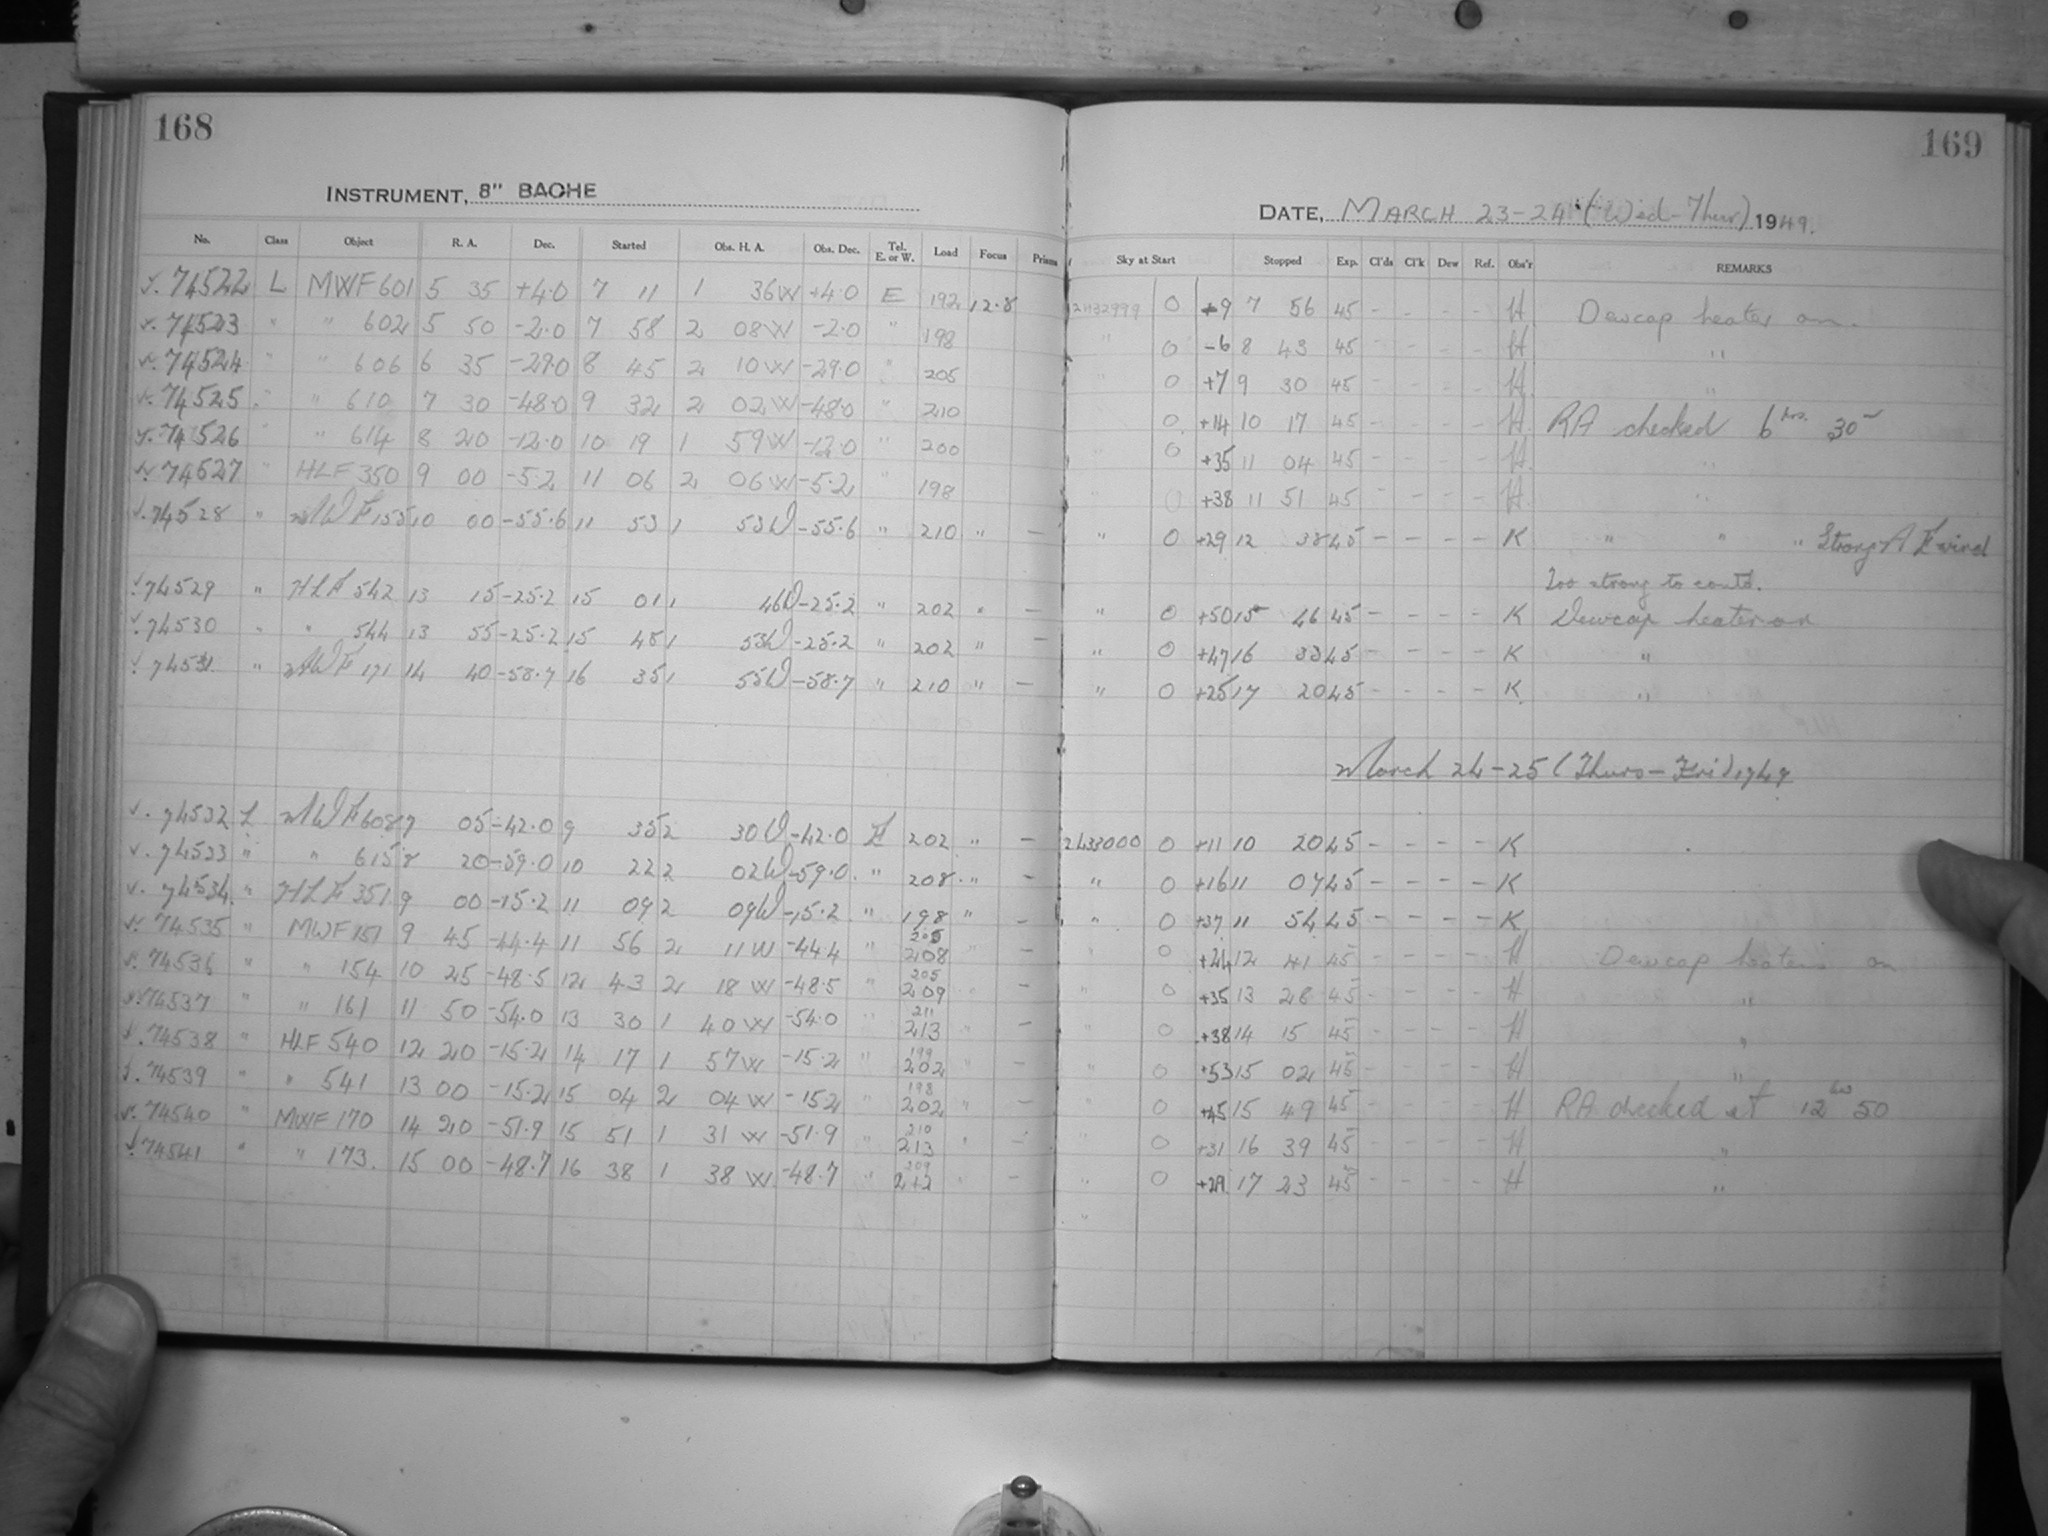 168
INSTRUMENT, 8" BACHE
No. Class Object R. A. Dec. Started Obs. H. A. Obs. Dec. Tel. E. or W. Load Focus Prisms
74522 L MWF 601 5 35 +4.0 7 11 1 36W +4.0 E 192 12.8
74523 " " 602 5 50 -2.0 7 58 2 08W -2.0 " 198
74524 " " 606 6 35 -29.0 8 45 2 10W -29.0 " 205
74525 " " 610 7 30 -48.0 9 32 2 02W -48.0 " 210
74526 " " 614 8 20 -12.0 10 19 1 59W -12.0 " 200
74527 " HLF 350 9 00 -5.2 11 06 2 06W -5.2 " 198
74528 " MWF 153 10 00 -55.6 11 53 1 53W -55.6 " 210 " -
74529 " HLF 542 13 15 -25.2 15 01 1 46W -25.2 " 202 " -
74530 " " 544 13 55 -25.2 15 48 1 53W -25.2 " 202 " -
74531 " MWF 171 14 40 -58.7 16 35 1 55W -58.7 " 210 " -
74532 L MWF 608 7 05 -42.0 9 35 2 30W -42.0 E 202 " -
74533 " " 615 8 20 -59.0 10 22 2 02W -59.0 " 208 " -
74534 " HLF 351 9 00 -15.2 11 09 2 09W -15.2 " 198 " -
74535 " MWF 151 9 45 -44.4 11 56 2 11W -44.4 " 205 208 " -
74536 " " 154 10 25 -48.5 12 43 2 18W -48.5 " 205 209 " -
74537 " " 161 11 50 -54.0 13 30 1 40W -54.0 " 211 213 " -
74538 " HLF 540 12 20 -15.2 14 17 1 57W -15.2 " 199 202 " -
74539 " " 541 13 00 -15.2 15 04 2 04W -15.2 " 198 202 " -
74540 " MWF 170 14 20 -51.9 15 51 1 31W -51.9 " 210 213 " -
74541 " " 173 15 00 -48.7 16 38 1 38W -48.7 " 209 212 " -
169
DATE, MARCH 23-24 (Wed-Thur) 1949.
Sky at Start Stopped Exp. Cl'ds Cl'k Dew Ref. Obs'r REMARKS
2432999 0 +9 7 56 45 - - - - H Dewcap heater on.
" 0 -6 8 43 45 - - - - H "
" 0 +7 9 30 45 - - - - H "
0 +14 10 17 45 - - - - H RA checked 6 hrs. 30 m
" 0 +35 11 04 45 - - - - H "
" 0 +38 11 51 45 - - - - H "
" 0 +29 12 38 45 - - - - K " " " Strong wind
Too strong to contd.
" 0 +50 15 46 45 - - - - K Dewcap heater on
" 0 +47 16 33 45 - - - - K "
" 0 +25 17 20 45 - - - - K "
March 24-25 (Thurs-Fri) 1949
2433000 0 +11 10 20 45 - - - - K
" 0 +16 11 07 45 - - - - K
" 0 +37 11 54 45 - - - - K
" 0 +24 12 41 45 - - - - H Dewcap heaters on
" 0 +35 13 28 45 - - - - H "
" 0 +38 14 15 45 - - - - H "
" 0 +53 15 02 45 - - - - H "
" 0 +45 15 49 45 - - - - H RA checked at 12 hrs 50
" 0 +31 16 39 45 - - - - H "
" 0 17 23 45 - - - - H "
"